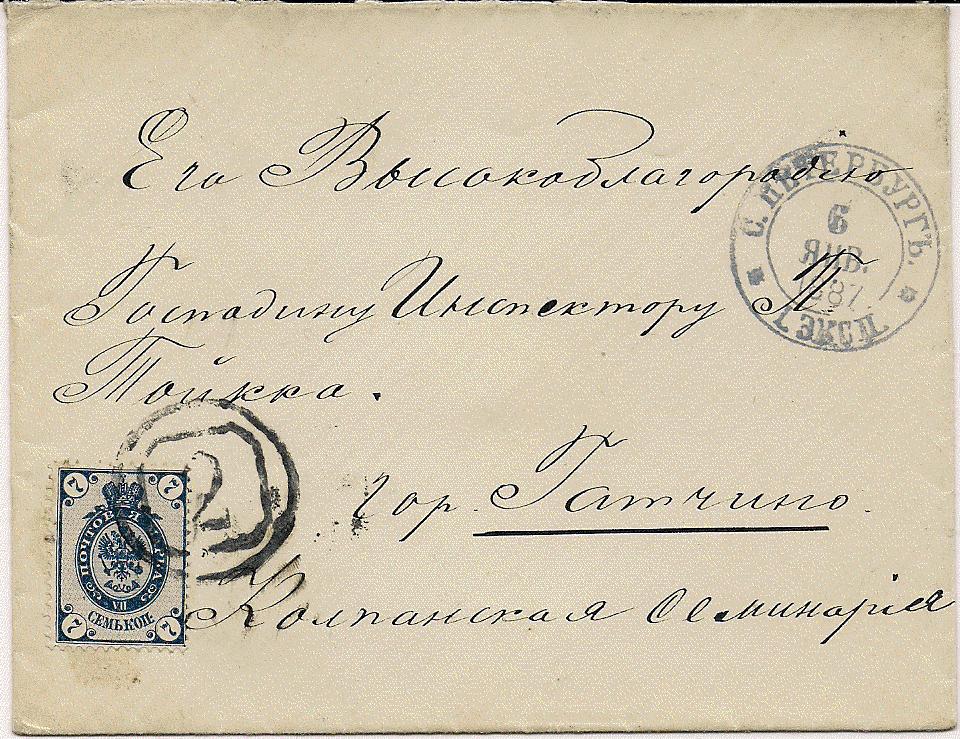 Его Высокоблагородію
С. ПЕТЕРБУРГЪ.
6
ЯНВ.
1887.
7 ЭКСП.
Господину Инспектору
Тойкка.
гор. Гатчино.
Колпанская Семинарія
2
7 7
ПОЧТОВАЯ МАРКА
VII
СЕМЬ КОП.
7 7